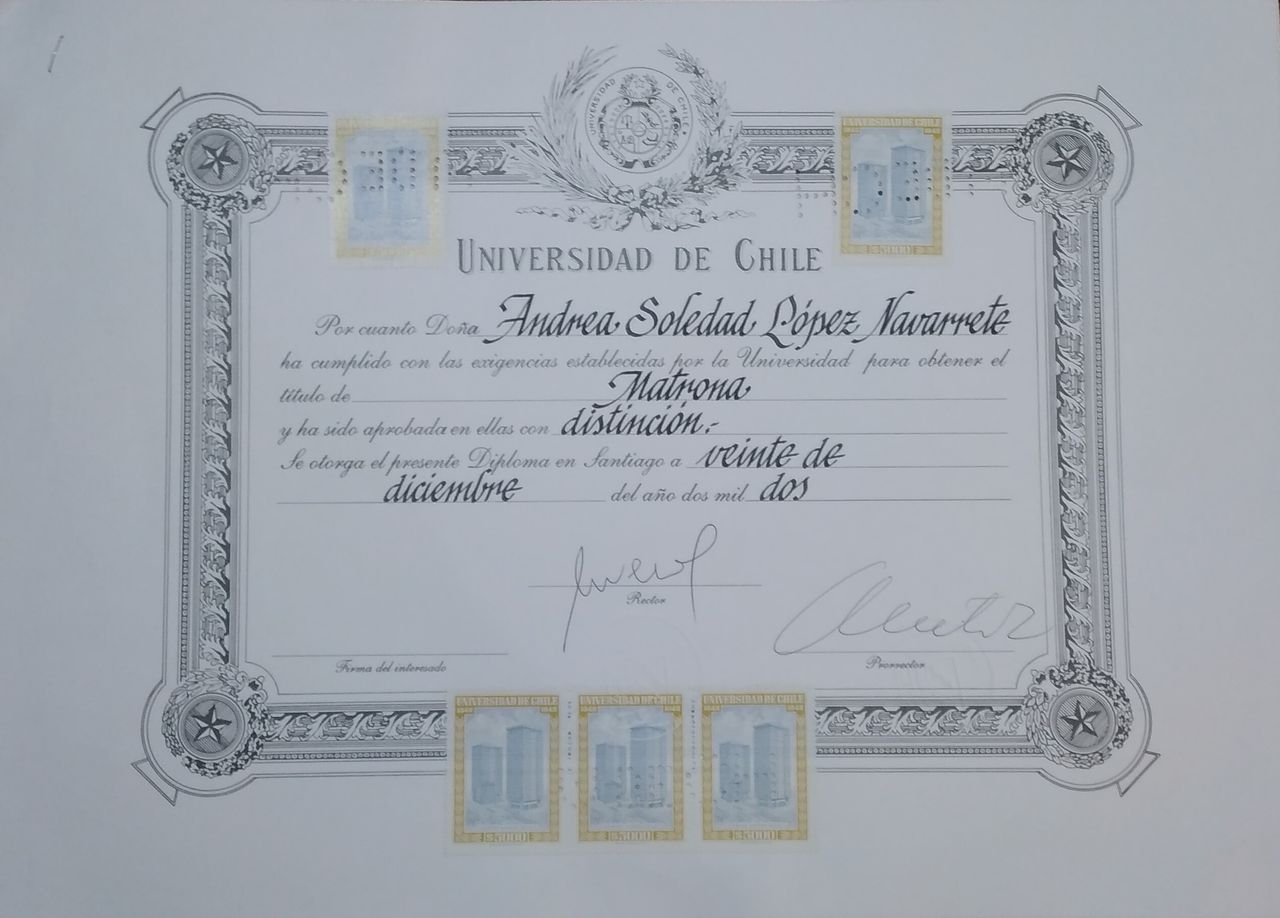 UNIVERSIDAD DE CHILE
UNIVERSIDAD DE CHILE
1842 1942
$5000
UNIVERSIDAD DE CHILE
Por cuanto Doña Andrea Soledad López Navarrete
ha cumplido con las exigencias establecidas por la Universidad para obtener el
título de Matrona
y ha sido aprobada en ellas con distinción.-
Se otorga el presente Diploma en Santiago a veinte de
diciembre del año dos mil dos
Rector
Firma del interesado
Prorrector
UNIVERSIDAD DE CHILE
1842 1942
$5000
UNIVERSIDAD DE CHILE
1842 1942
$5000
UNIVERSIDAD DE CHILE
1842 1942
$5000